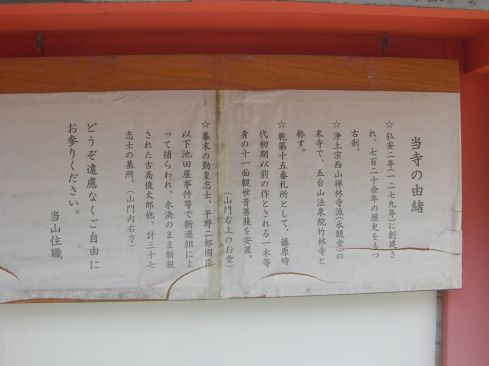 当寺の由緒
☆弘安二年(一二七九年)に創建さ
れ、七百二十余年の歴史をもつ
古刹。
☆浄土宗西山禅林寺派(永観堂)の
末寺で、五台山法泉院竹林寺と
称す。
☆乾第十五番札所として、藤原時
代初期以前の作とされる一木等
身の十一面観世音菩薩を安置。
(山門右上のお堂)
☆幕末の勤皇志士、平野二郎國臣
以下池田屋事件等で新選組によ
って捕らわれ、未決のまま斬殺
された古高俊太郎他、計三十七
志士の墓所。(山門内右方)
どうぞ遠慮なくご自由に
お参りください。
当山住職